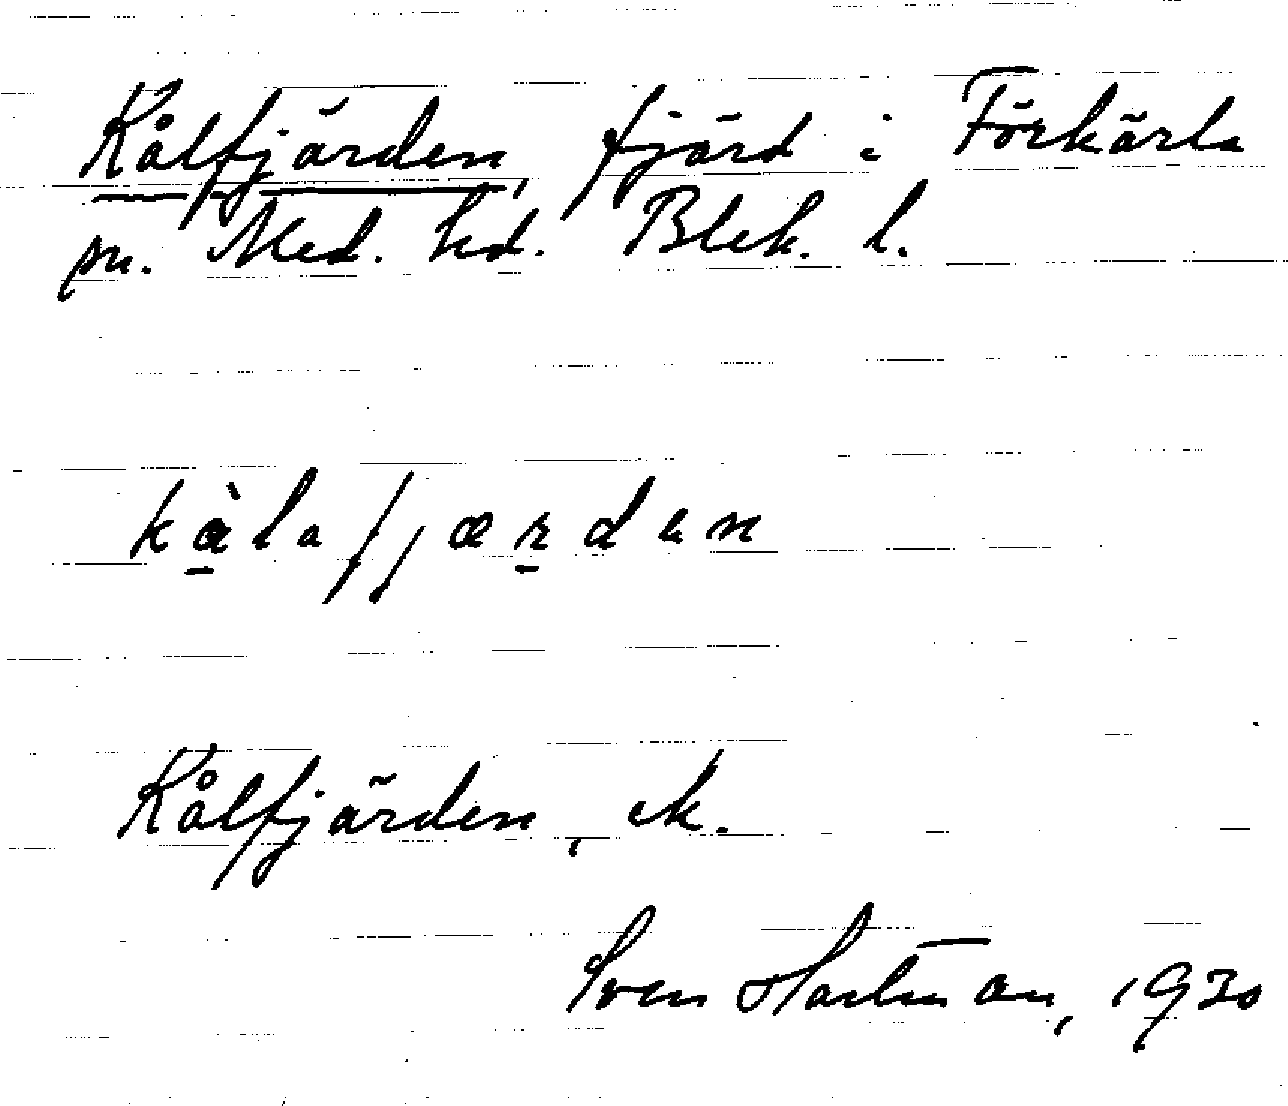 Kålfjärden, fjärd i Förkärla
sn. Med. hd. Blek. l.
kàlafjærdan
Kålfjärden, ek.
Sven Hartman, 1930